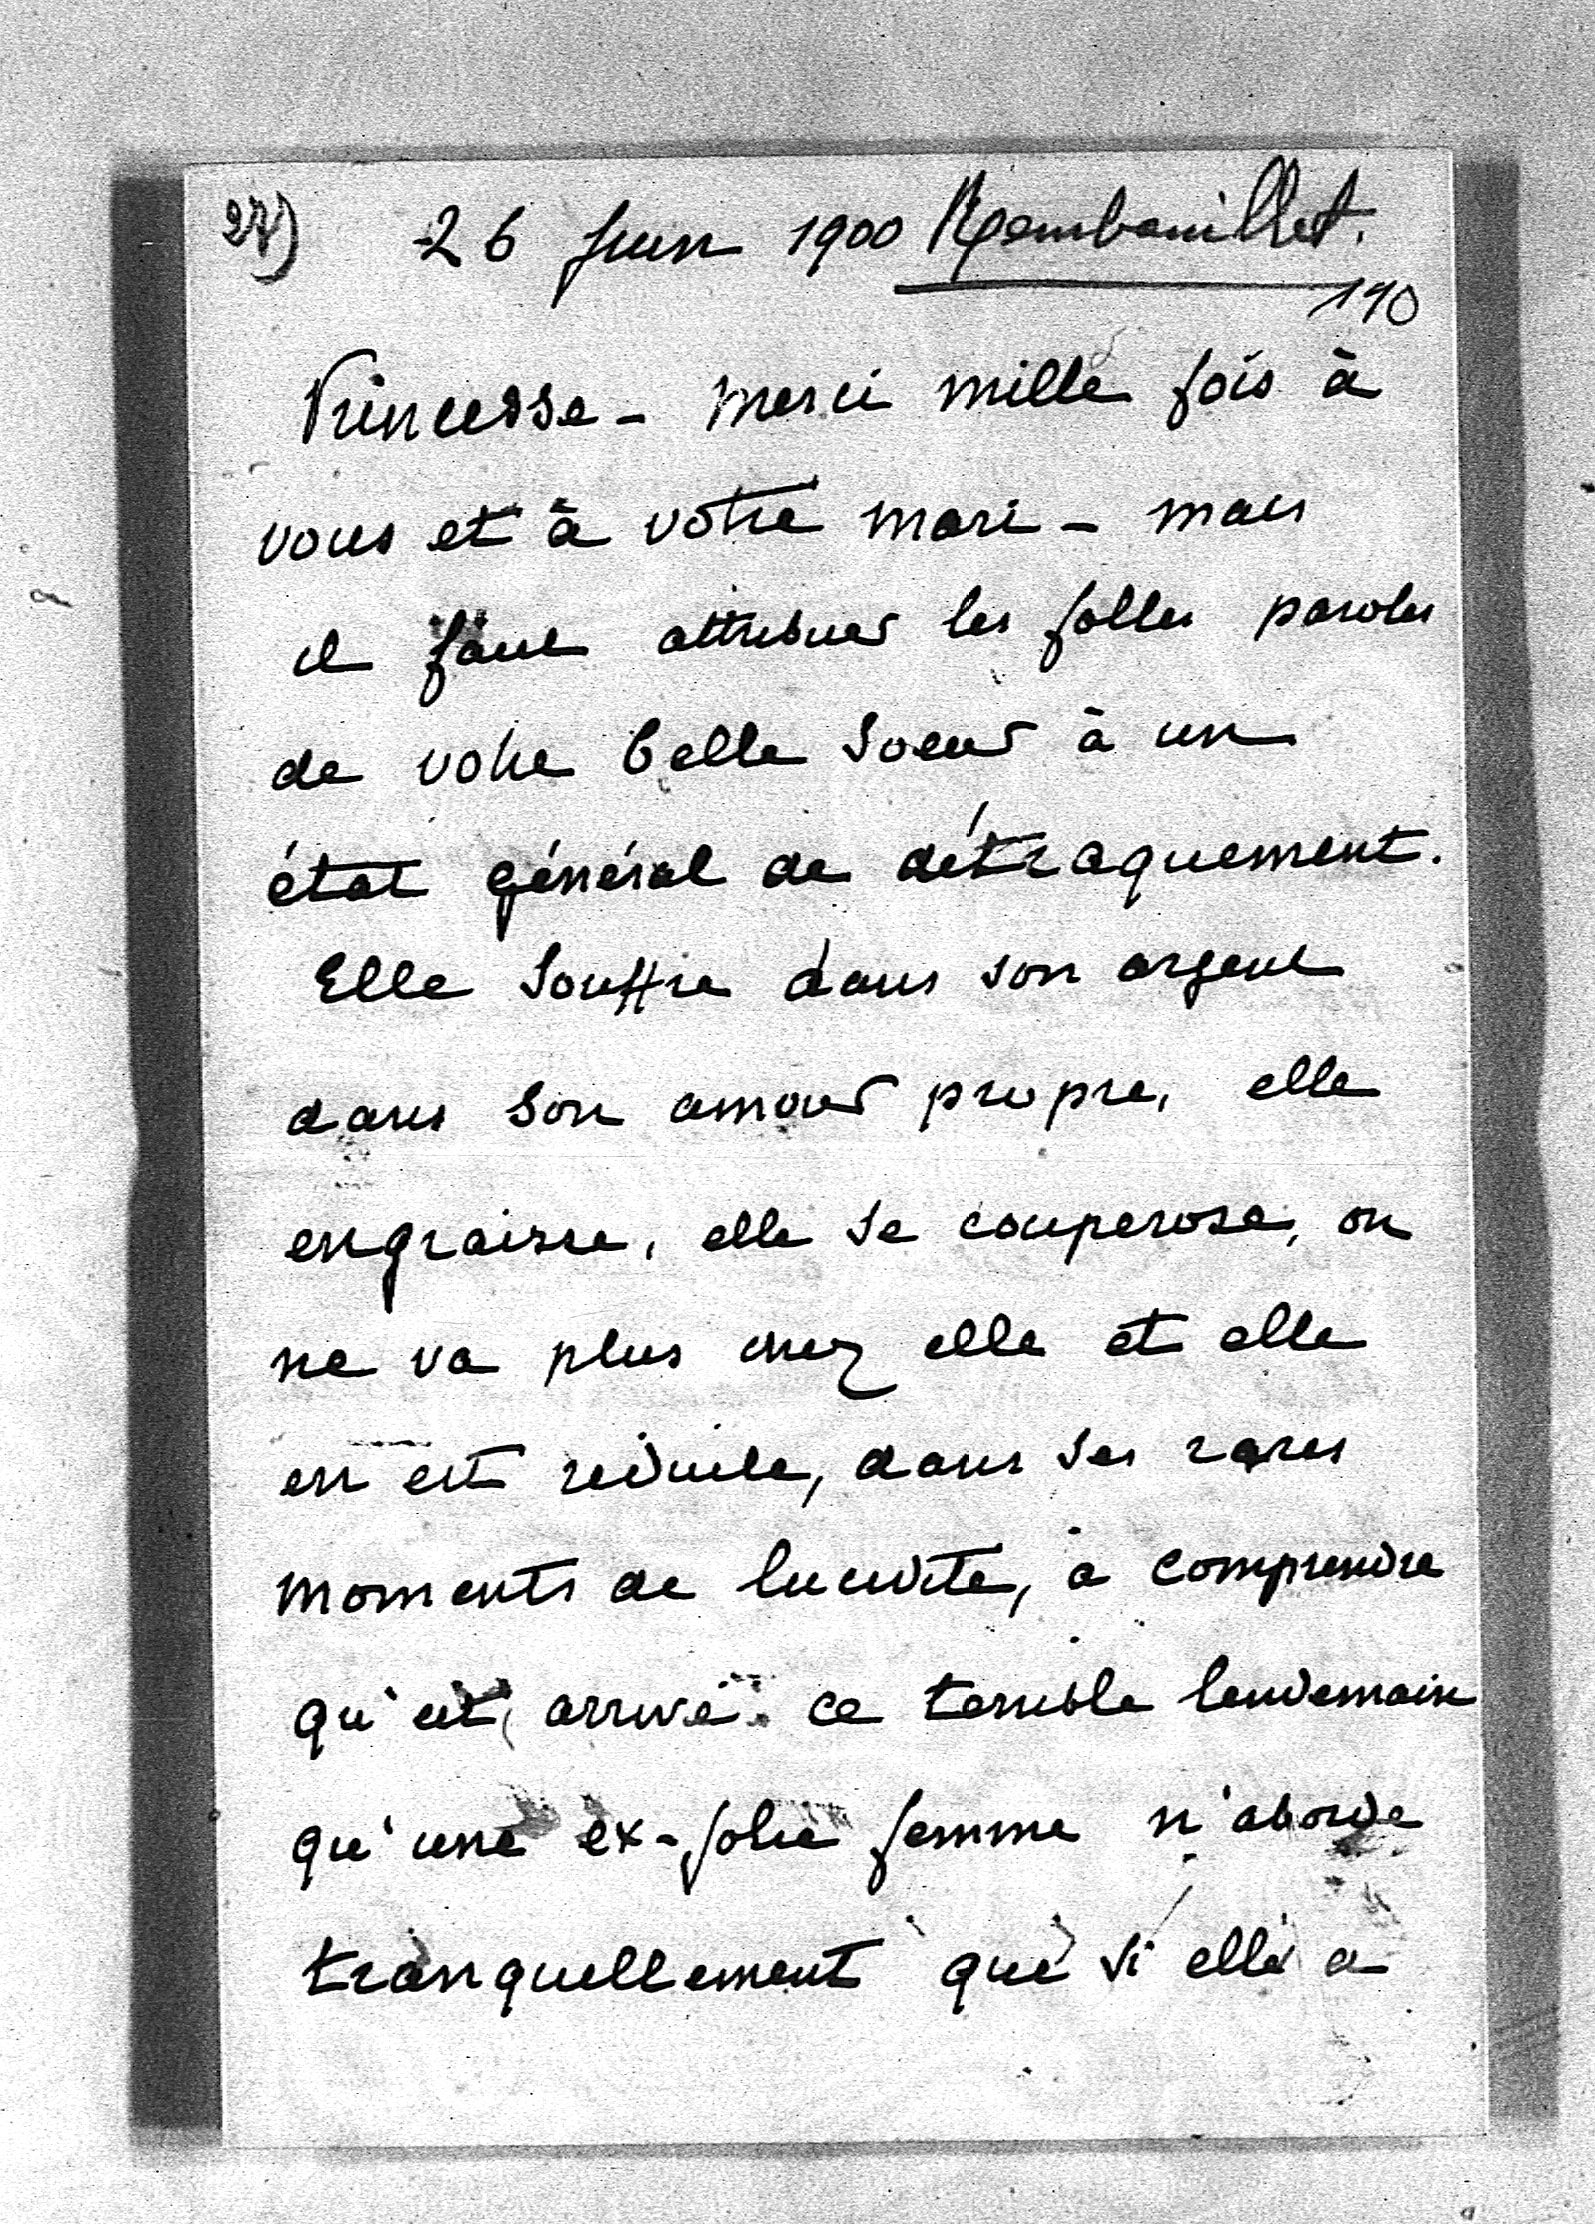 27) 26 Juin 1900 Rambouillet.
190
Princesse - merci mille fois à
vous et à votre mari - mais
il faut attribuer les folles paroles
de votre belle soeur à un
état général de détraquement.
Elle souffre dans son argent
dans son amour propre, elle
engraisse, elle se couperose, on
ne va plus chez elle et elle
en est réduite, dans ses rares
moments de lucidité, à comprendre
qu'est arrivé ce terrible lendemain
qu'une ex-jolie femme n'aborde
tranquillement que si elle a